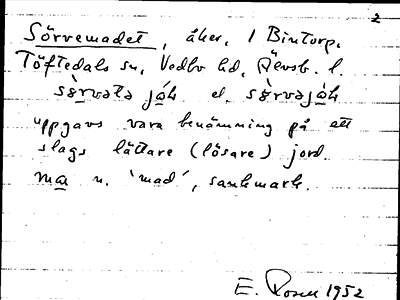 2
Sörvemadet, åker, 1 Bintorp,
Töftedals sn, Vedbo hd, Älvsb. l.
sörvətə jǻh el. sörvəjåh
uppgavs vara benämning på ett
slags lättare (lösare) jord.
ma n. 'mad', sankmark.
E. Rosen 1952